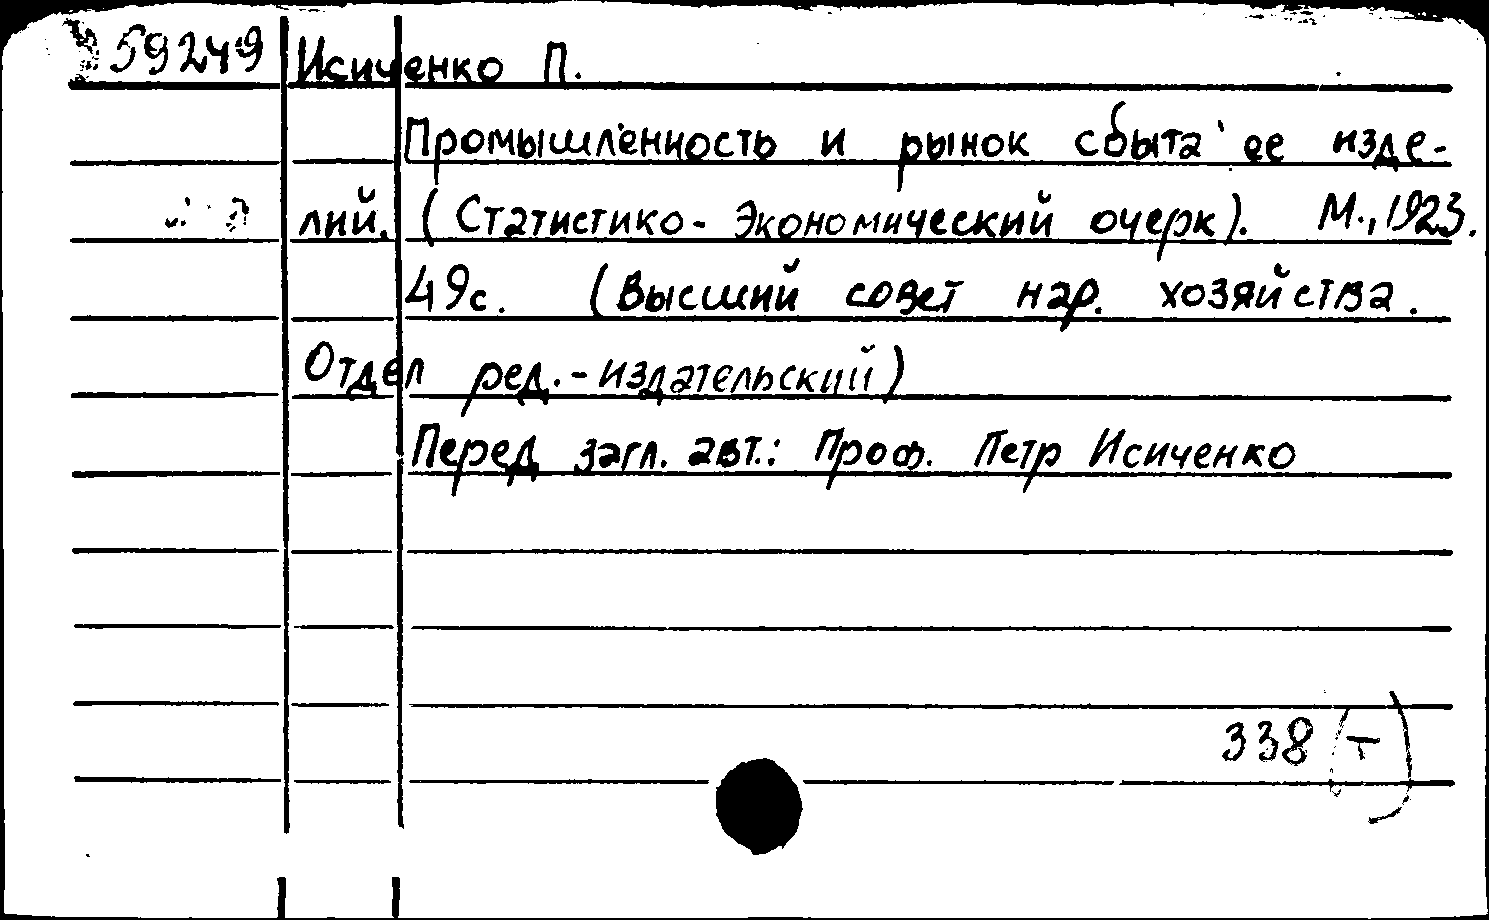 59249 Исиченко П.
Промышленность и рынок сбыта ее изде-
лий. (Статистико-Экономический очерк). М., 1923.
49с. (Высший совет нар. хозяйства.
Отдел ред.-издательский)
Перед загл. авт.: Проф. Петр Исиченко
338 (Т)